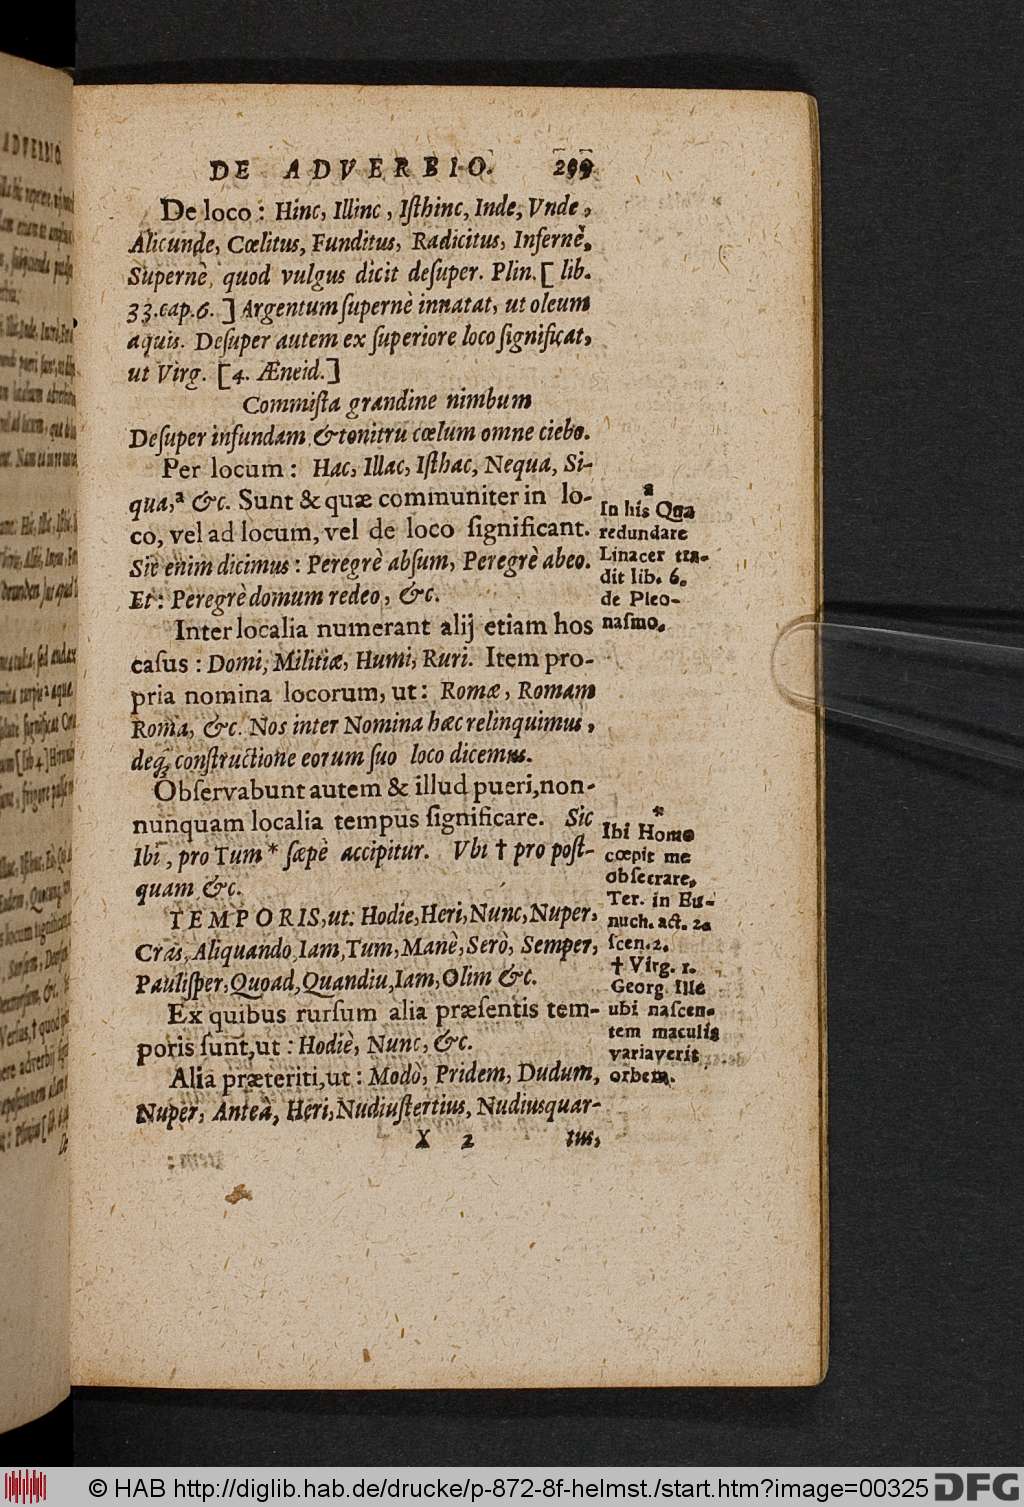 DE ADVERBIO. 299
De loco: Hinc, Illinc, Iſthinc, Inde, Vnde,
Alicunde, Cœlitus, Funditus, Radicitus, Infernè,
Supernè, quod vulgus dicit deſuper. Plin. [lib.
33.cap.6.] Argentum ſupernè innatat, ut oleum
aquis. Deſuper autem ex ſuperiore loco ſignificat,
ut Virg. [4. Æneid.]
Commiſta grandine nimbum
Deſuper infundam & tonitru cœlum omne ciebo.
Per locum: Hac, Illac, Iſthac, Nequa, Si-
qua,ᵃ &c. Sunt & quæ communiter in lo-
co, vel ad locum, vel de loco ſignificant.
Sic enim dicimus: Peregrè abſum, Peregrè abeo.
Et: Peregrè domum redeo, &c.
Inter localia numerant alij etiam hos
caſus: Domi, Militiæ, Humi, Ruri. Item pro-
pria nomina locorum, ut: Romæ, Romam
Roma, &c. Nos inter Nomina hæc relinquimus,
deq́; conſtructione eorum ſuo loco dicemus.
Obſervabunt autem & illud pueri, non-
nunquam localia tempus ſignificare. Sic
Ibi, pro Tum* ſæpè accipitur. Vbi † pro poſt-
quam &c.
TEMPORIS, ut: Hodie, Heri, Nunc, Nuper,
Cras, Aliquando, Iam, Tum, Manè, Serò, Semper,
Pauliſper, Quoad, Quandiu, Iam, Olim &c.
Ex quibus rurſum alia præſentis tem-
poris ſunt, ut: Hodiè, Nunc, &c.
Alia præteriti, ut: Modò, Pridem, Dudum,
Nuper, Anteà, Heri, Nudiuſtertius, Nudiusquar-
X 2 tus,
a
In his Qua
redundare
Linacer tra-
dit lib. 6.
de Pleo-
naſmo.
*
Ibi Homo
cœpit me
obſecrare,
Ter. in Eu-
nuch. act. 2.
ſcen. 2.
† Virg. 1.
Georg. Ille
ubi naſcen-
tem maculis
variaverit
orbem.
© HAB http://diglib.hab.de/drucke/p-872-8f-helmst./start.htm?image=00325 DFG